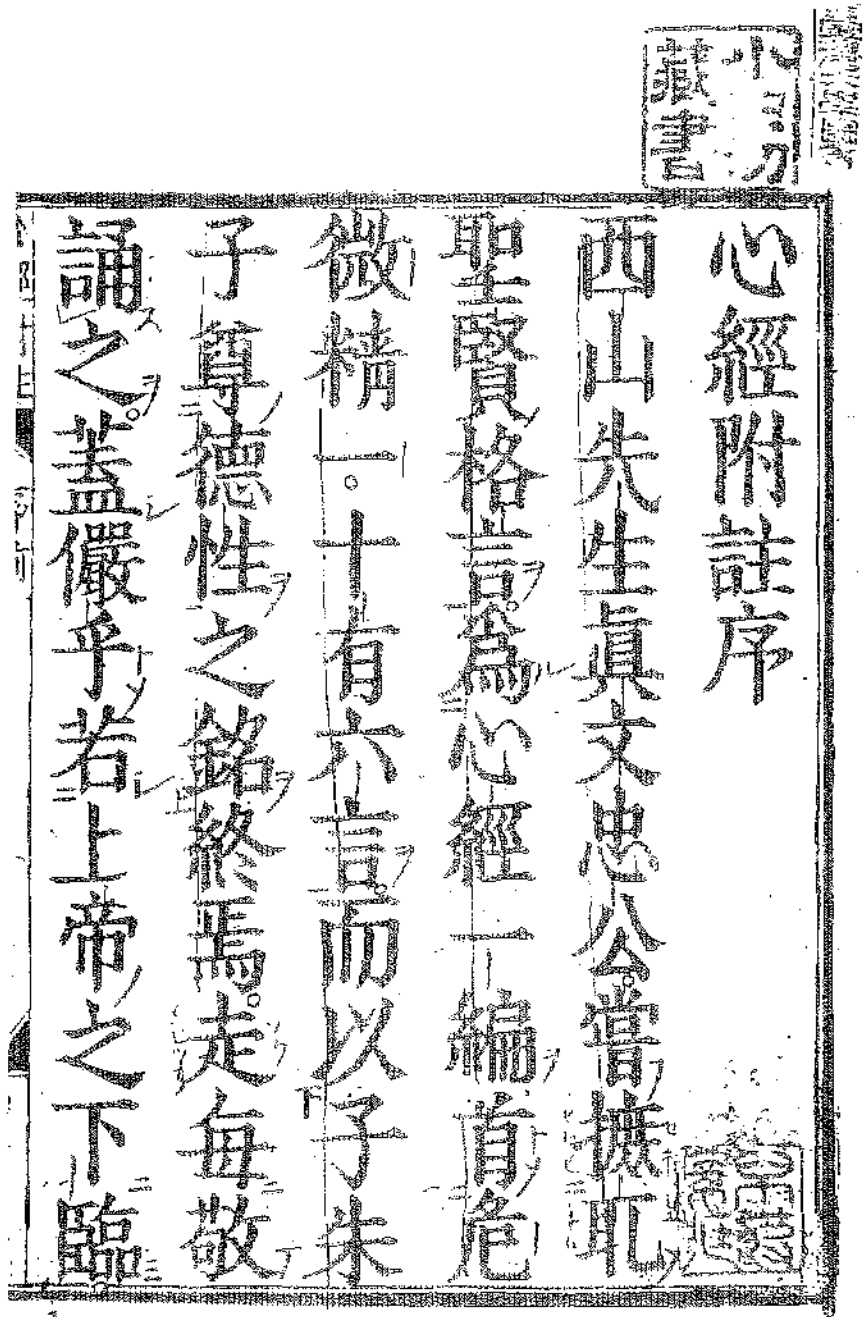 藏書
心經附註序
西山先生眞文忠公。嘗摭取
聖賢格言。爲心經一編首危
微精一。十有六言。而以子朱
子尊德性之銘終焉。走每敬
誦之。蓋儼乎若上帝之下臨。